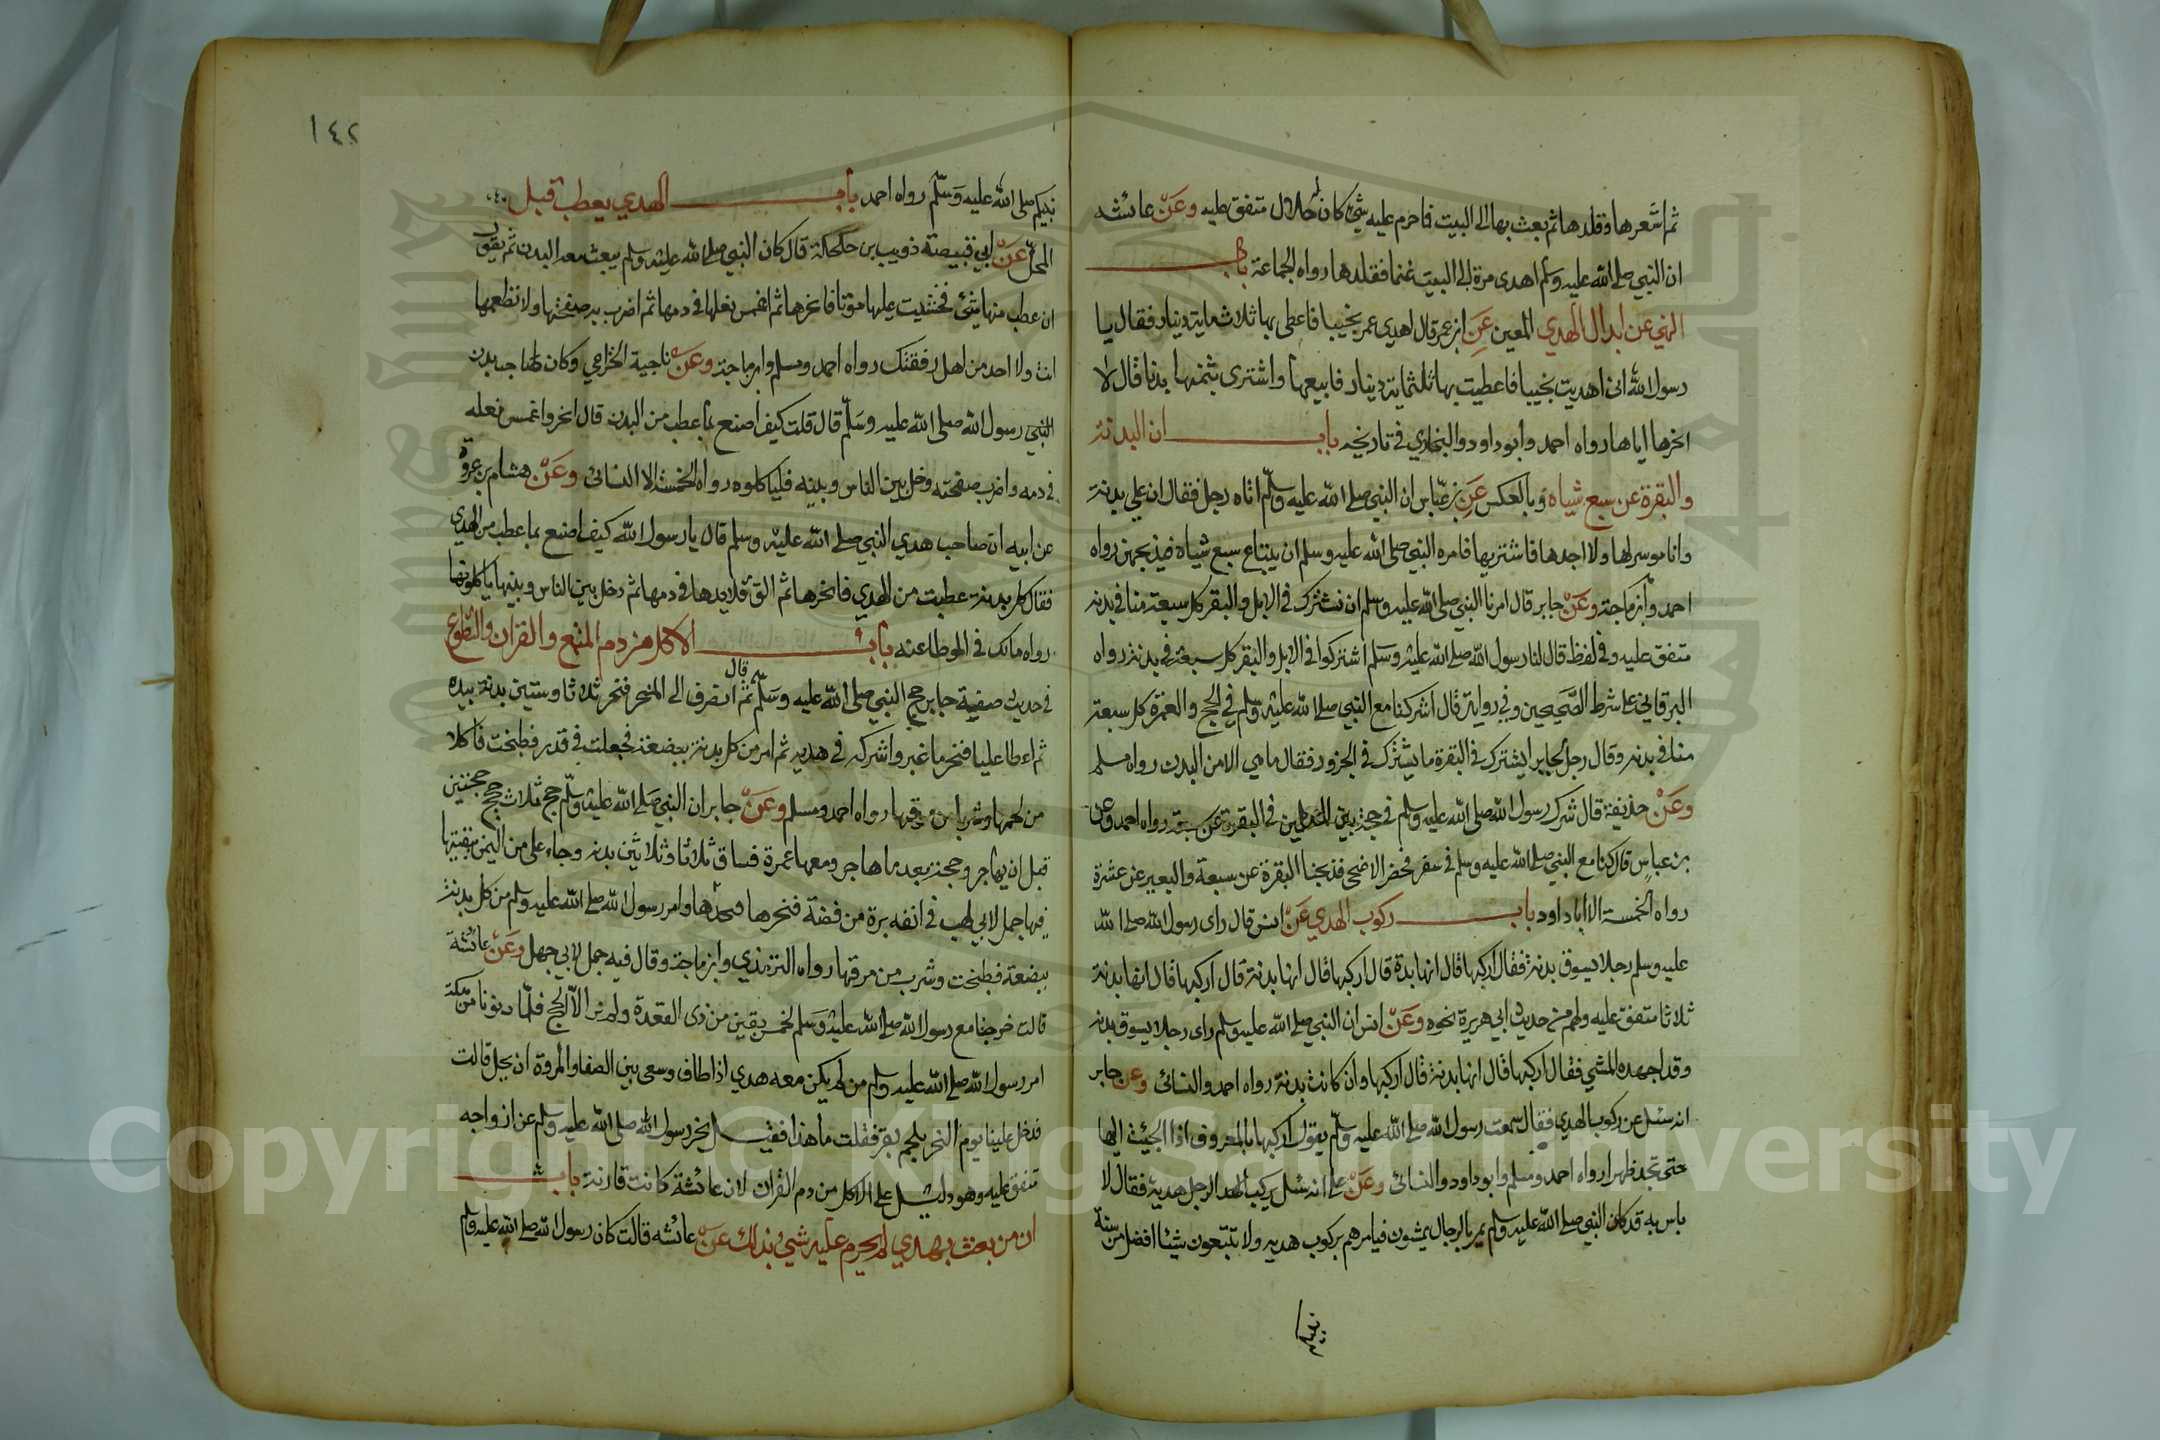 ثم اشعرها وقلدها ثم بعث بها الى البيت فما حرم عليه شيء كان له حلال متفق عليه وعن عائشه
ان النبي صلى الله عليه وسلم اهدى مرة الى البيت غنما فقلدها رواه الجماعة باب
النهي عن ابدال الهدي المعين عن ابن عمر قال اهدى عمر نجيبا فاعطى بها ثلاث ماية دينار فقال يا
رسول الله اني اهديت نجيبا فاعطيت بها ثلثماية دينار فابيعها واشترى بثمنها بدنا قال لا
انحرها اياها رواه احمد وابو داود والبخاري في تاريخه باب ان البدنة
والبقرة عن سبع شياه وبالعكس عن بن عباس ان النبي صلى الله عليه وسلم اتاه رجل فقال ان علي بدنة
وانا موسر لها ولا اجدها فاشتريها فامره النبي صلى الله عليه وسلم ان يبتاع سبع شياه فيذبحهن رواه
احمد وابن ماجة وعن جابر قال امرنا النبي صلى الله عليه وسلم ان نشترك في الابل والبقر كل سبعة منا في بدنه
متفق عليه وفي لفظ قال لنا رسول الله صلى الله عليه وسلم اشتركوا في الابل والبقر كل سبعة في بدنة رواه
البرقاني على شرط الصحيحين وفي رواية قال اشركنا مع النبي صلى الله عليه وسلم في الحج والعمرة كل سبعة
منا في بدنه وقال رجل لجابر ايشترك في البقرة ما يشترك في الجزور فقال ما هي الا من البدن رواه مسلم
وعن حذيفة قال شرك رسول الله صلى الله عليه وسلم في حجته بين المسلمين في البقرة عن سبعة رواه احمد وعن
بن عباس قال كنا مع النبي صلى الله عليه وسلم في سفر فحضر الاضحى فذبحنا البقرة عن سبعة والبعير عن عشرة
رواه الخمسة الا ابا داود باب ركوب الهدي عن انس قال راى رسول الله صلى الله
عليه وسلم رجلا يسوق بدنة فقال اركبها قال انها بدنة قال اركبها قال انها بدنة قال اركبها قال انها بدنة
ثلاثا متفق عليه ولهم من حديث ابي هريرة نحوه وعن انس ان النبي صلى الله عليه وسلم راى رجلا يسوق بدنه
وقد اجهده المشي فقال اركبها قال انها بدنة قال اركبها وان كانت بدنة رواه احمد والنسائي وعن جابر
انه سئل عن ركوب الهدي فقال سمعت رسول الله صلى الله عليه وسلم يقول اركبها بالمعروف اذا الجيئت اليها
حتى تجد ظهرا رواه احمد ومسلم وابو داود والنسائي وعن علي انه سئل يركب الرجل هديه فقال لا
باس به قد كان النبي صلى الله عليه وسلم يمر بالرجال يمشون فيامرهم بركوب هديه ولا تتبعون شيئا افضل من سنة
نبيكم
١٤٢
نبيكم صلى الله عليه وسلم رواه احمد باب الهدي يعطب قبل
المحل عن ابي قبيصة ذويب بن حلحلة قال كان النبي صلى الله عليه وسلم يبعث معه البدن ثم يقول
ان عطب منها شئ فخشيت عليها موتا فانحرها ثم اغمس نعلها في دمها ثم اضرب به صفحتها ولا تطعمها
انت ولا احد من اهل رفقتك رواه احمد ومسلم وابن ماجة وعن ناجية الخزاعي وكان صاحب بدن
النبي رسول الله صلى الله عليه وسلم قال قلت كيف اصنع بما عطب من البدن قال انحره واغمس نعله
في دمه واضرب صفحته وخل بين الناس وبينه فلياكلوه رواه الخمسة الا النسائى وعن هشام بن عروة
عن ابيه ان صاحب هدي النبي صلى الله عليه وسلم قال يا رسول الله كيف اصنع بما عطب من الهدي
فقال كل بدنة عطبت من الهدي فانحرها ثم الق قلايدها في دمها ثم خل بين الناس وبينها ياكلونها
رواه مالك في الموطا عنه باب الاكل من دم المتمتع والقران والتطوع
في حديث صفة جابر حج النبي صلى الله عليه وسلم قال ثم انصرف الى المنحر فنحر ثلاثا وستين بدنة بيده
ثم اعطا عليا فنحر ما غبر واشركه في هديه ثم امر من كل بدنة ببضعة فجعلت في قدر فطبخت فاكلا
من لحمها وشربا من مرقها رواه احمد ومسلم وعن جابر ان النبي صلى الله عليه وسلم حج ثلاث حجج حجتين
قبل ان يهاجر وحجة بعد ما هاجر ومعها عمرة فساق ثلاثا وثلاثين بدنه وجاء علي من اليمن ببقيتها
فيها جمل لابي لهب في انفه برة من فضة فنحرها وامر رسول الله صلى الله عليه وسلم من كل بدنة
ببضعة فطبخت وشرب من مرقها رواه الترمذي وابن ماجة وقال فيه جمل لابي جهل وعن عائشة
قالت خرجنا مع رسول الله صلى الله عليه وسلم لخمس بقين من ذى القعدة ولا نرى الا الحج فلما دنونا من مكة
امر رسول الله صلى الله عليه وسلم من لم يكن معه هدي اذا طاف وسعى بين الصفا والمروة ان يحل قالت
فدخل علينا يوم النحر بلحم بقر فقلت ما هذا فقيل نحر رسول الله صلى الله عليه وسلم عن ازواجه
متفق عليه وهو دليل على الاكل من دم القران لان عائشة كانت قارنة باب
ان من بعث بهدي لم يحرم عليه شيء بذلك عن عائشه قالت كان رسول الله صلى الله عليه وسلم
Copyright © King Saud University